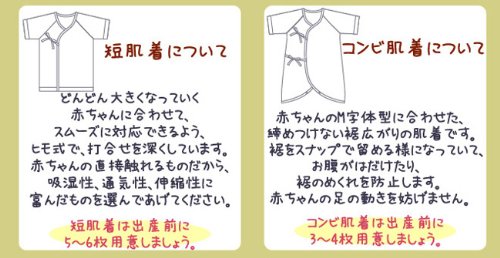 短肌着について
どんどん大きくなっていく
赤ちゃんに合わせて、
スムーズに対応できるよう、
ヒモ式で、打合せを深くしています。
赤ちゃんの直接触れるものだから、
吸湿性、通気性、伸縮性に
富んだものを選んであげてください。
短肌着は出産前に
5〜6枚用意しましょう。
コンビ肌着について
赤ちゃんのM字体型に合わせた、
締めつけない裾広がりの肌着です。
裾をスナップで留める様になっていて、
お腹がはだけたり、
裾のめくれを防止します。
赤ちゃんの足の動きを妨げません。
コンビ肌着は出産前に
3〜4枚用意しましょう。